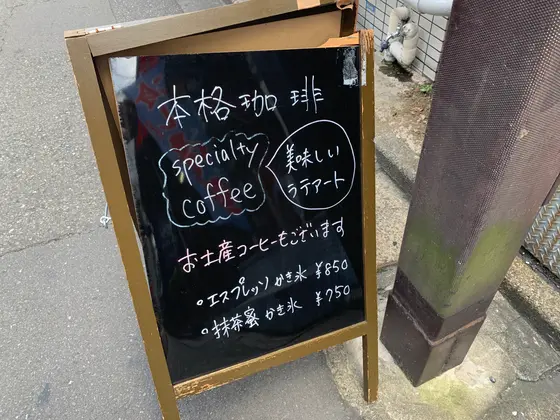 本格珈琲
specialty
coffee
美味しい
ラテアート
お土産コーヒーもございます
・エスプレッソかき氷 ¥850
・抹茶蜜かき氷 ¥750